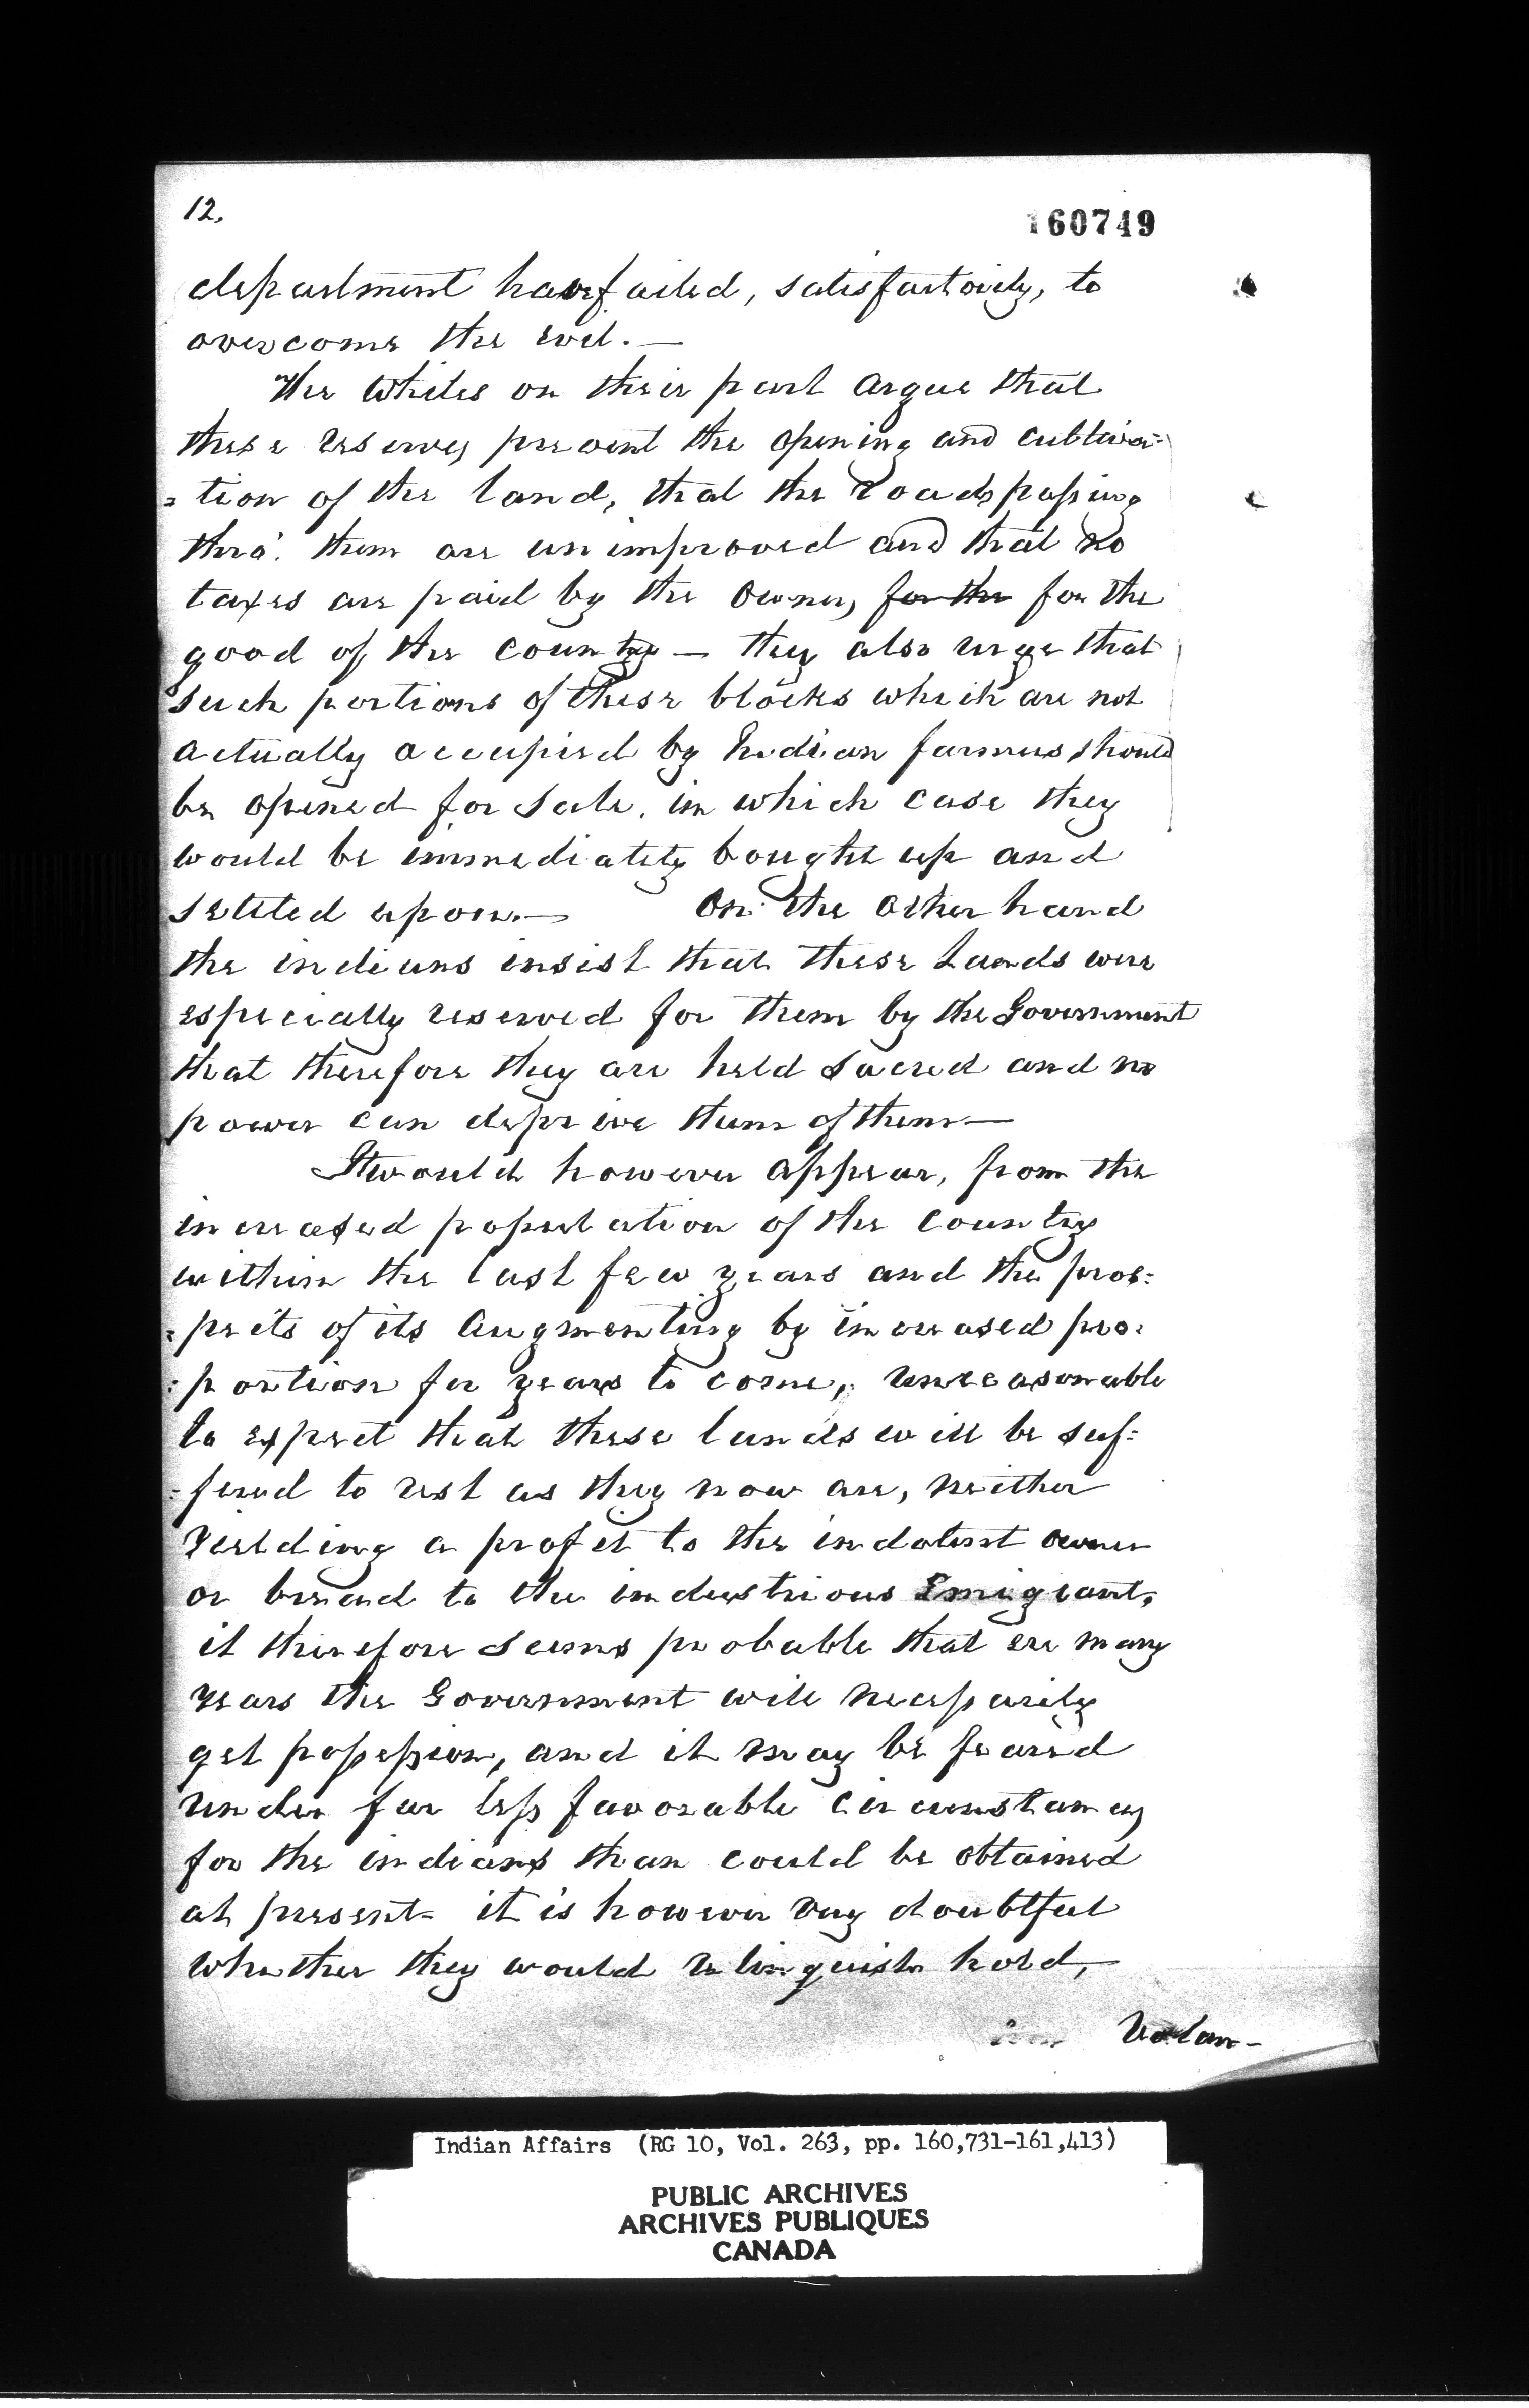 12.
160749
department have failed, satisfactorily, to
overcome the evil. —
The Whites on their part argue that
these reserves prevent the opening and cultiva=
=tion of the land, that the roads passing
thro'. them are unimproved and that no
taxes are paid by the owners for the for the
good of the country — they also urge that
such portions of these blocks which are not
actually occupied by Indian farmers should
be opened for sale, in which case they
would be immediately bought up and
settled upon. — On the other hand
the indians insist that these Lands were
especially reserved for them by the Government
that therefore they are held sacred and no
power can deprive them of them —
It would however appear, from the
increased population of the country
within the last few years and the pros=
=pects of its augmenting by increased pro=
=portion for years to come, unreasonable
to expect that these lands will be suf=
=fered to rest as they now are, neither
yielding a profit to the indolent owner
or bread to the industrious Emigrant,
it therefore seems probable that ere many
years the Government will necessarily
get possession, and it may be feared
under far less favorable circumstances
for the indians than could be obtained
at present - it is however very doubtful
whether they would relinquish hold, —
Volun-
Indian Affairs (RG 10, Vol. 263, pp. 160,731-161,413)
PUBLIC ARCHIVES
ARCHIVES PUBLIQUES
CANADA